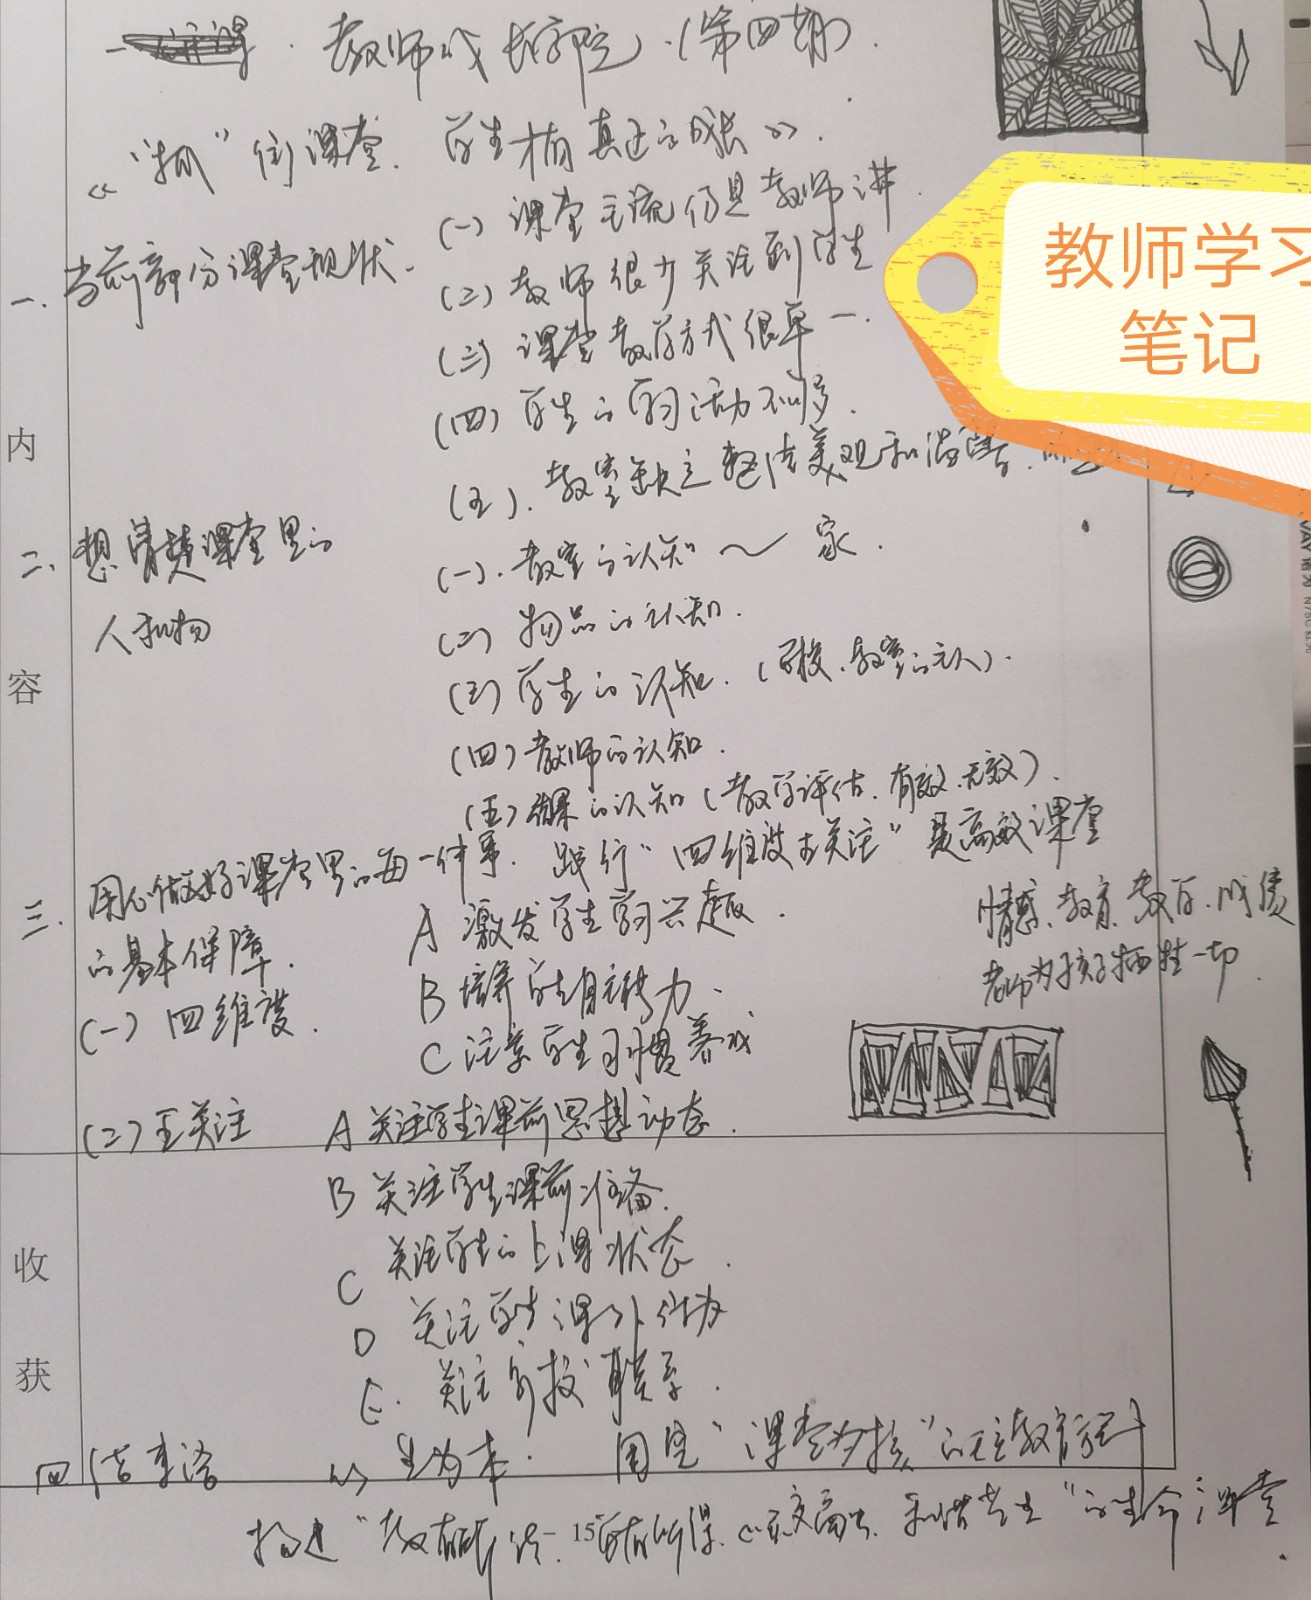 教师成长学院.(第四期).
《"抓"住课堂.学生才有真正的成长》.
一.当前部分课堂现状.
(一)课堂主流仍是教师讲.
(二)教师很少关注到学生
(三)课堂教学方式很单一.
(四)学生的学习活动不够.
(五).教室缺乏整洁美观和温馨.
二.想清楚课堂里的
人和物
(一).教室的认知～家.
(二)物品的认知.
(三)学生的认知.(学校、教室的主人).
(四)教师的认知.
(五)结果的认知(教学评估.有效.无效).
三.用心做好课堂里的每一件事.践行"四维度五关注"是高效课堂
的基本保障.
(一)四维度.
A 激发学生学习兴趣.
B 培养学生自主能力.
C 注意学生习惯养成
情感、教育、教学、成绩
老师为孩子牺牲一切
(二)五关注
A 关注学生课前思想动态.
B 关注学生课前准备.
C 关注学生的上课状态.
D 关注学生课外行为
E.关注家校联系.
四 结束语
以生为本.
"课堂为核"的
"的生命课堂.
15
内
容
收
获
教师学习
笔记